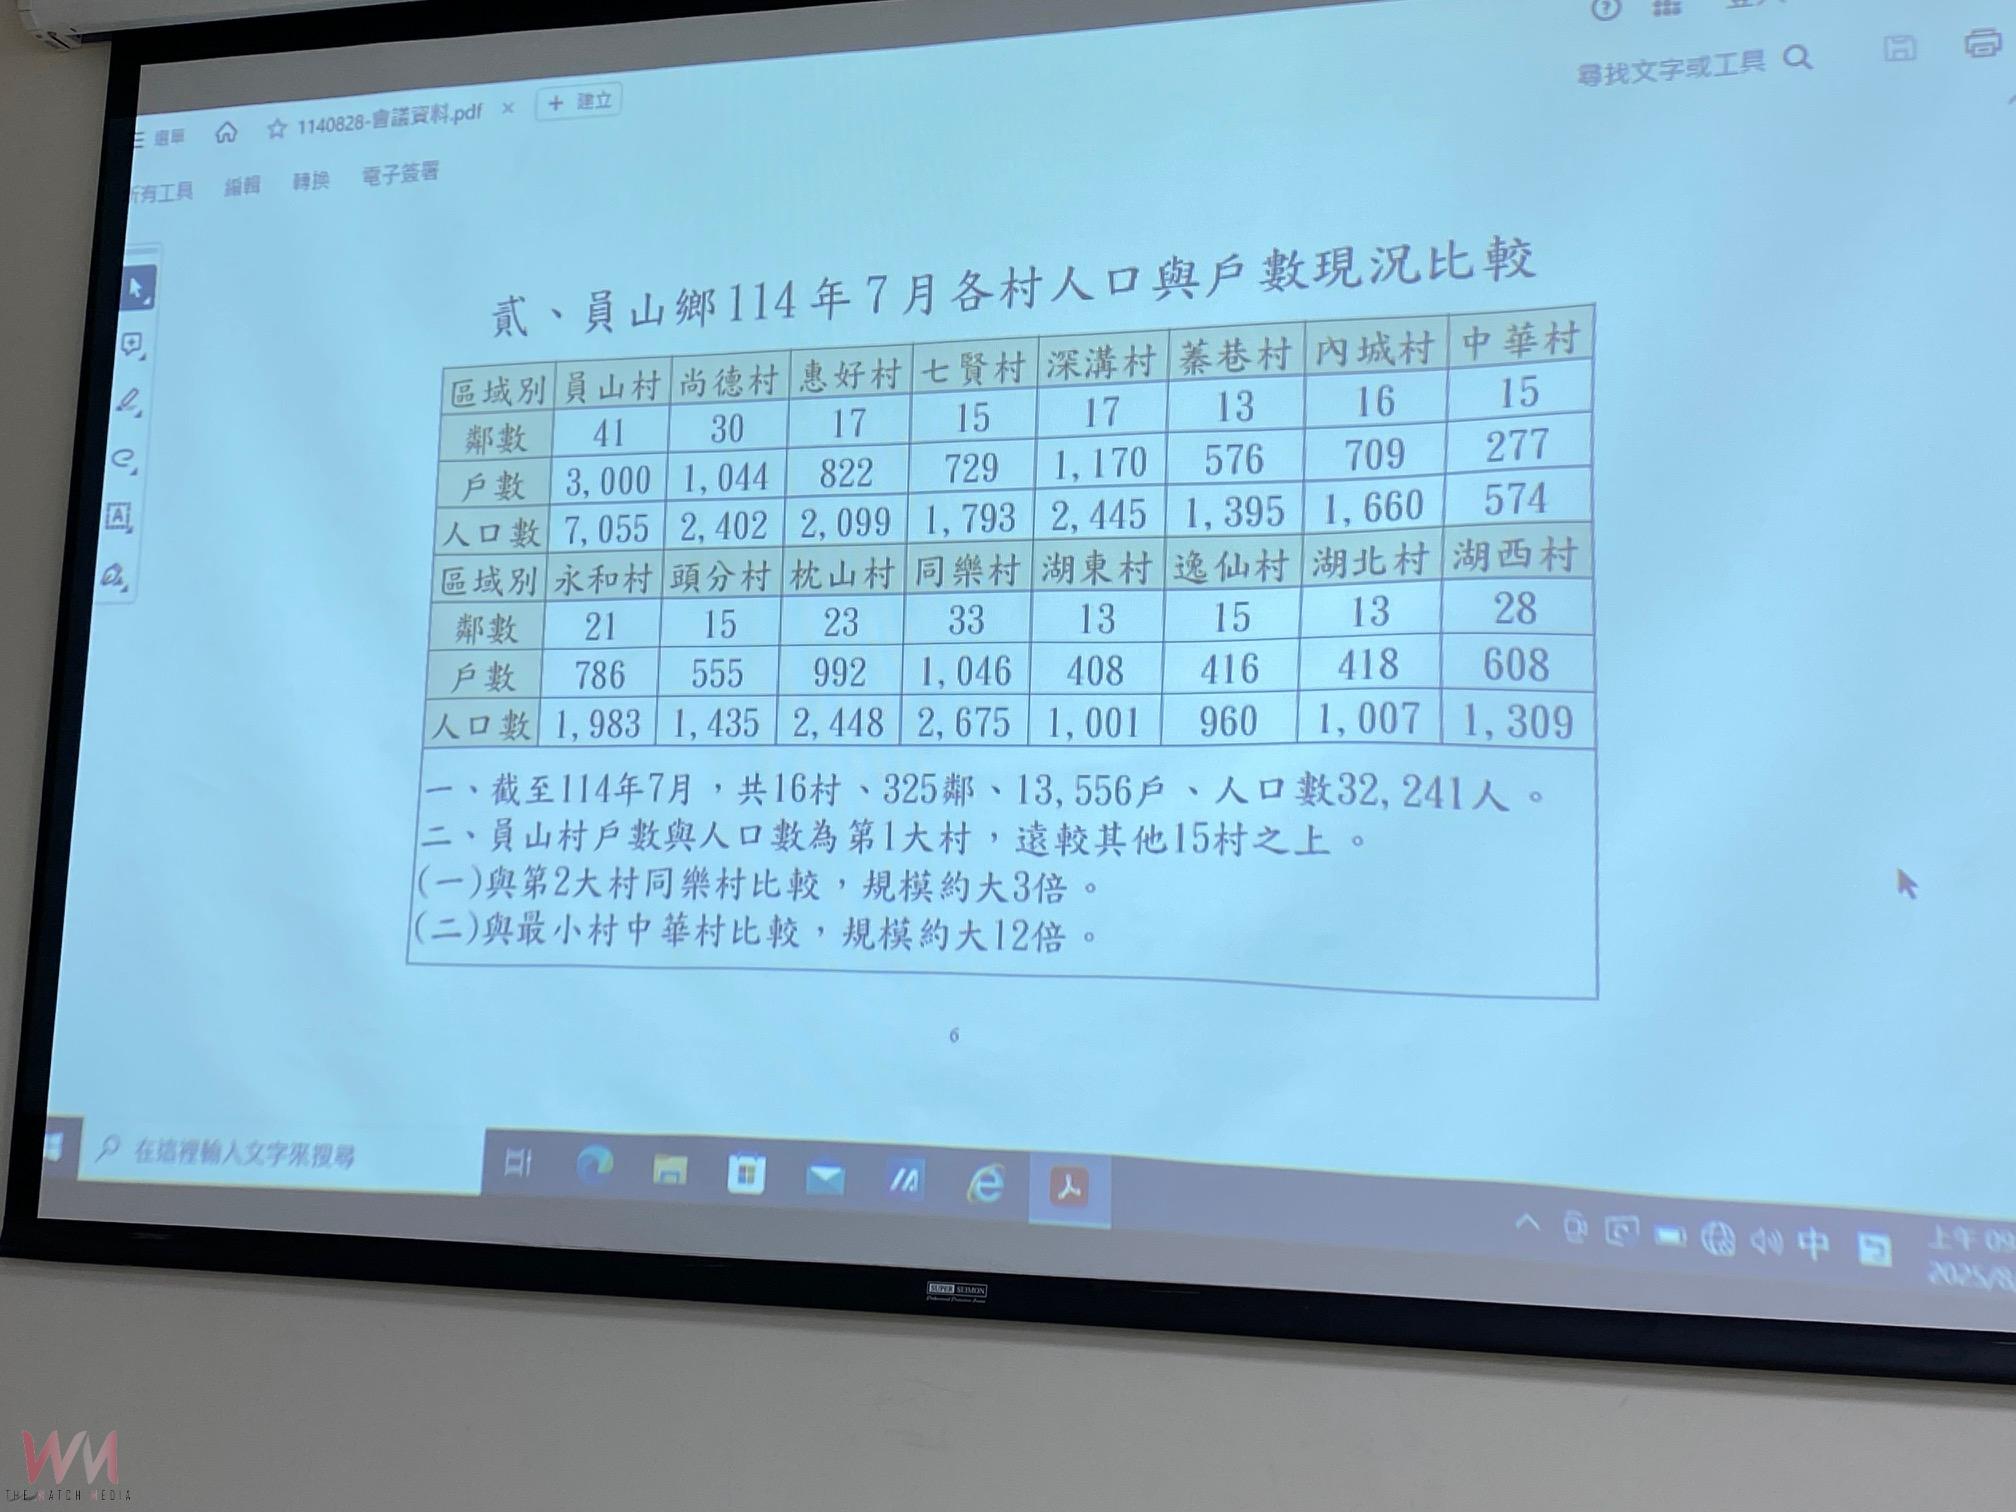 尋找文字或工具
選單 1140828-會議資料.pdf × + 建立
所有工具 編輯 轉換 電子簽署
貳、員山鄉114年7月各村人口與戶數現況比較
區域別 員山村 尚德村 惠好村 七賢村 深溝村 蓁巷村 內城村 中華村
鄰數 41 30 17 15 17 13 16 15
戶數 3,000 1,044 822 729 1,170 576 709 277
人口數 7,055 2,402 2,099 1,793 2,445 1,395 1,660 574
區域別 永和村 頭分村 枕山村 同樂村 湖東村 逸仙村 湖北村 湖西村
鄰數 21 15 23 33 13 15 13 28
戶數 786 555 992 1,046 408 416 418 608
人口數 1,983 1,435 2,448 2,675 1,001 960 1,007 1,309
一、截至114年7月，共16村、325鄰、13,556戶、人口數32,241人。
二、員山村戶數與人口數為第1大村，遠較其他15村之上。
(一)與第2大村同樂村比較，規模約大3倍。
(二)與最小村中華村比較，規模約大12倍。
6
在這裡輸入文字來搜尋
中
上午 09
2025/8
SUPER SEIMON
WM
THE WATCH MEDIA